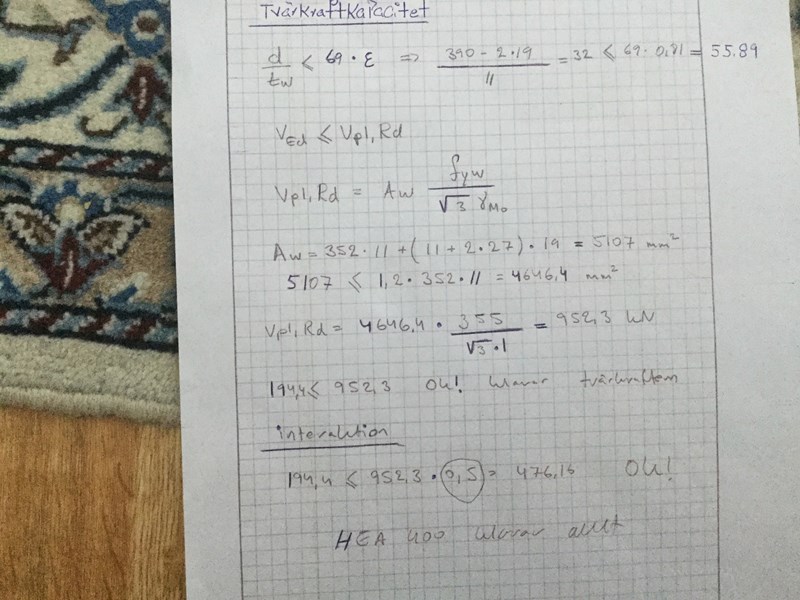 Tvärkraftkapacitet
d/tw ≤ 69·ε ⇒ (390 - 2·19)/11 = 32 ≤ 69·0,81 = 55.89
VEd ≤ Vpl,Rd
Vpl,Rd = Aw fyw/(√3 γM0)
Aw = 352·11 + (11 + 2·27)·19 = 5107 mm²
5107 ≤ 1,2·352·11 = 4646,4 mm²
Vpl,Rd = 4646,4 · 355/(√3·1) = 952,3 kN
194,4 ≤ 952,3 Ok! klarar tvärkraften
interaktion
194,4 ≤ 952,3 · 0,5 = 476,15 Ok!
HEA 400 klarar allt